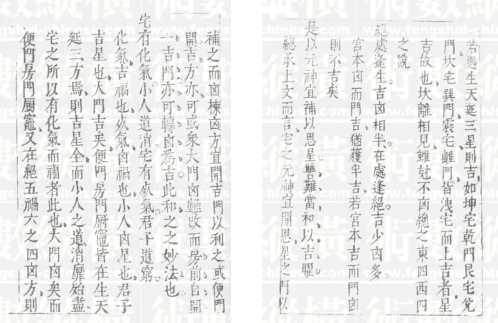 若遇生天延三星則吉如坤宅乾門艮宅兌
門坎宅巽門震宅離門皆洩宅而上吉者星
吉故也坎離相見雖尅不凶總之東四西四
之說
絕處逢生吉凶相半在處逢絕吉少凶多
宮本凶而門吉猶獲半吉若宮本吉而門凶
則不吉矣
是以元神宜補以恩星難當和以吉曜
承上文而言宅之元神宜開恩星之門以
補之而凶棟凶方宜開吉門以利之或便門
開吉方亦可或大門凶難改而房前自開
一吉門亦可轉凶為吉此和之之妙法也
宅有化氣小人道消宅有煞氣君子道窮
化氣吉福也煞氣凶禍也小人凶星也君子
吉星也大門吉矣便門房門厨竈皆在生天
延三方焉則吉星全而小人之道消靡始盡
宅之所以有化氣而福者此也大門凶矣而
便門房門厨竈又在絕五禍六之四凶方則